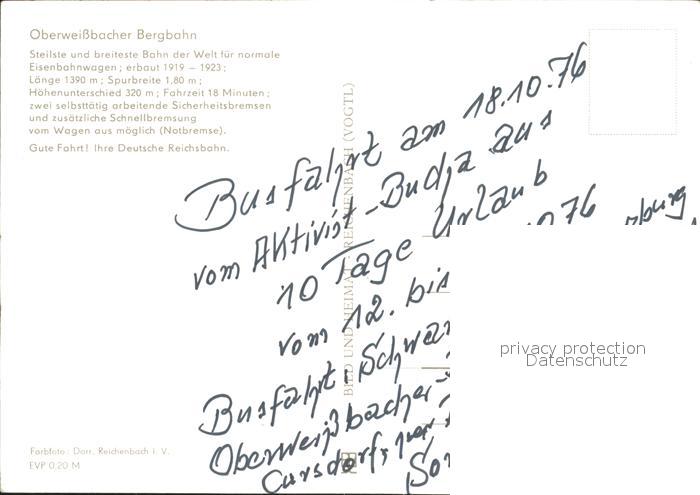 Oberweißbacher Bergbahn
Steilste und breiteste Bahn der Welt für normale
Eisenbahnwagen; erbaut 1919 – 1923;
Länge 1390 m; Spurbreite 1,80 m;
Höhenunterschied 320 m; Fahrzeit 18 Minuten;
zwei selbsttätig arbeitende Sicherheitsbremsen
und zusätzliche Schnellbremsung
vom Wagen aus möglich (Notbremse).
Gute Fahrt! Ihre Deutsche Reichsbahn.
Farbfoto: Darr, Reichenbach i. V.
EVP 0,20 M
BILD UND HEIMAT REICHENBACH (VOGTL)
Busfahrt am 18.10.76
vom Aktivist - Budja aus
10 Tage Urlaub
vom 12. bis 10 76
Busfahrt: Schwar zburg
Oberweißbacher-
Cursdorf,
Son
privacy protection
Datenschutz